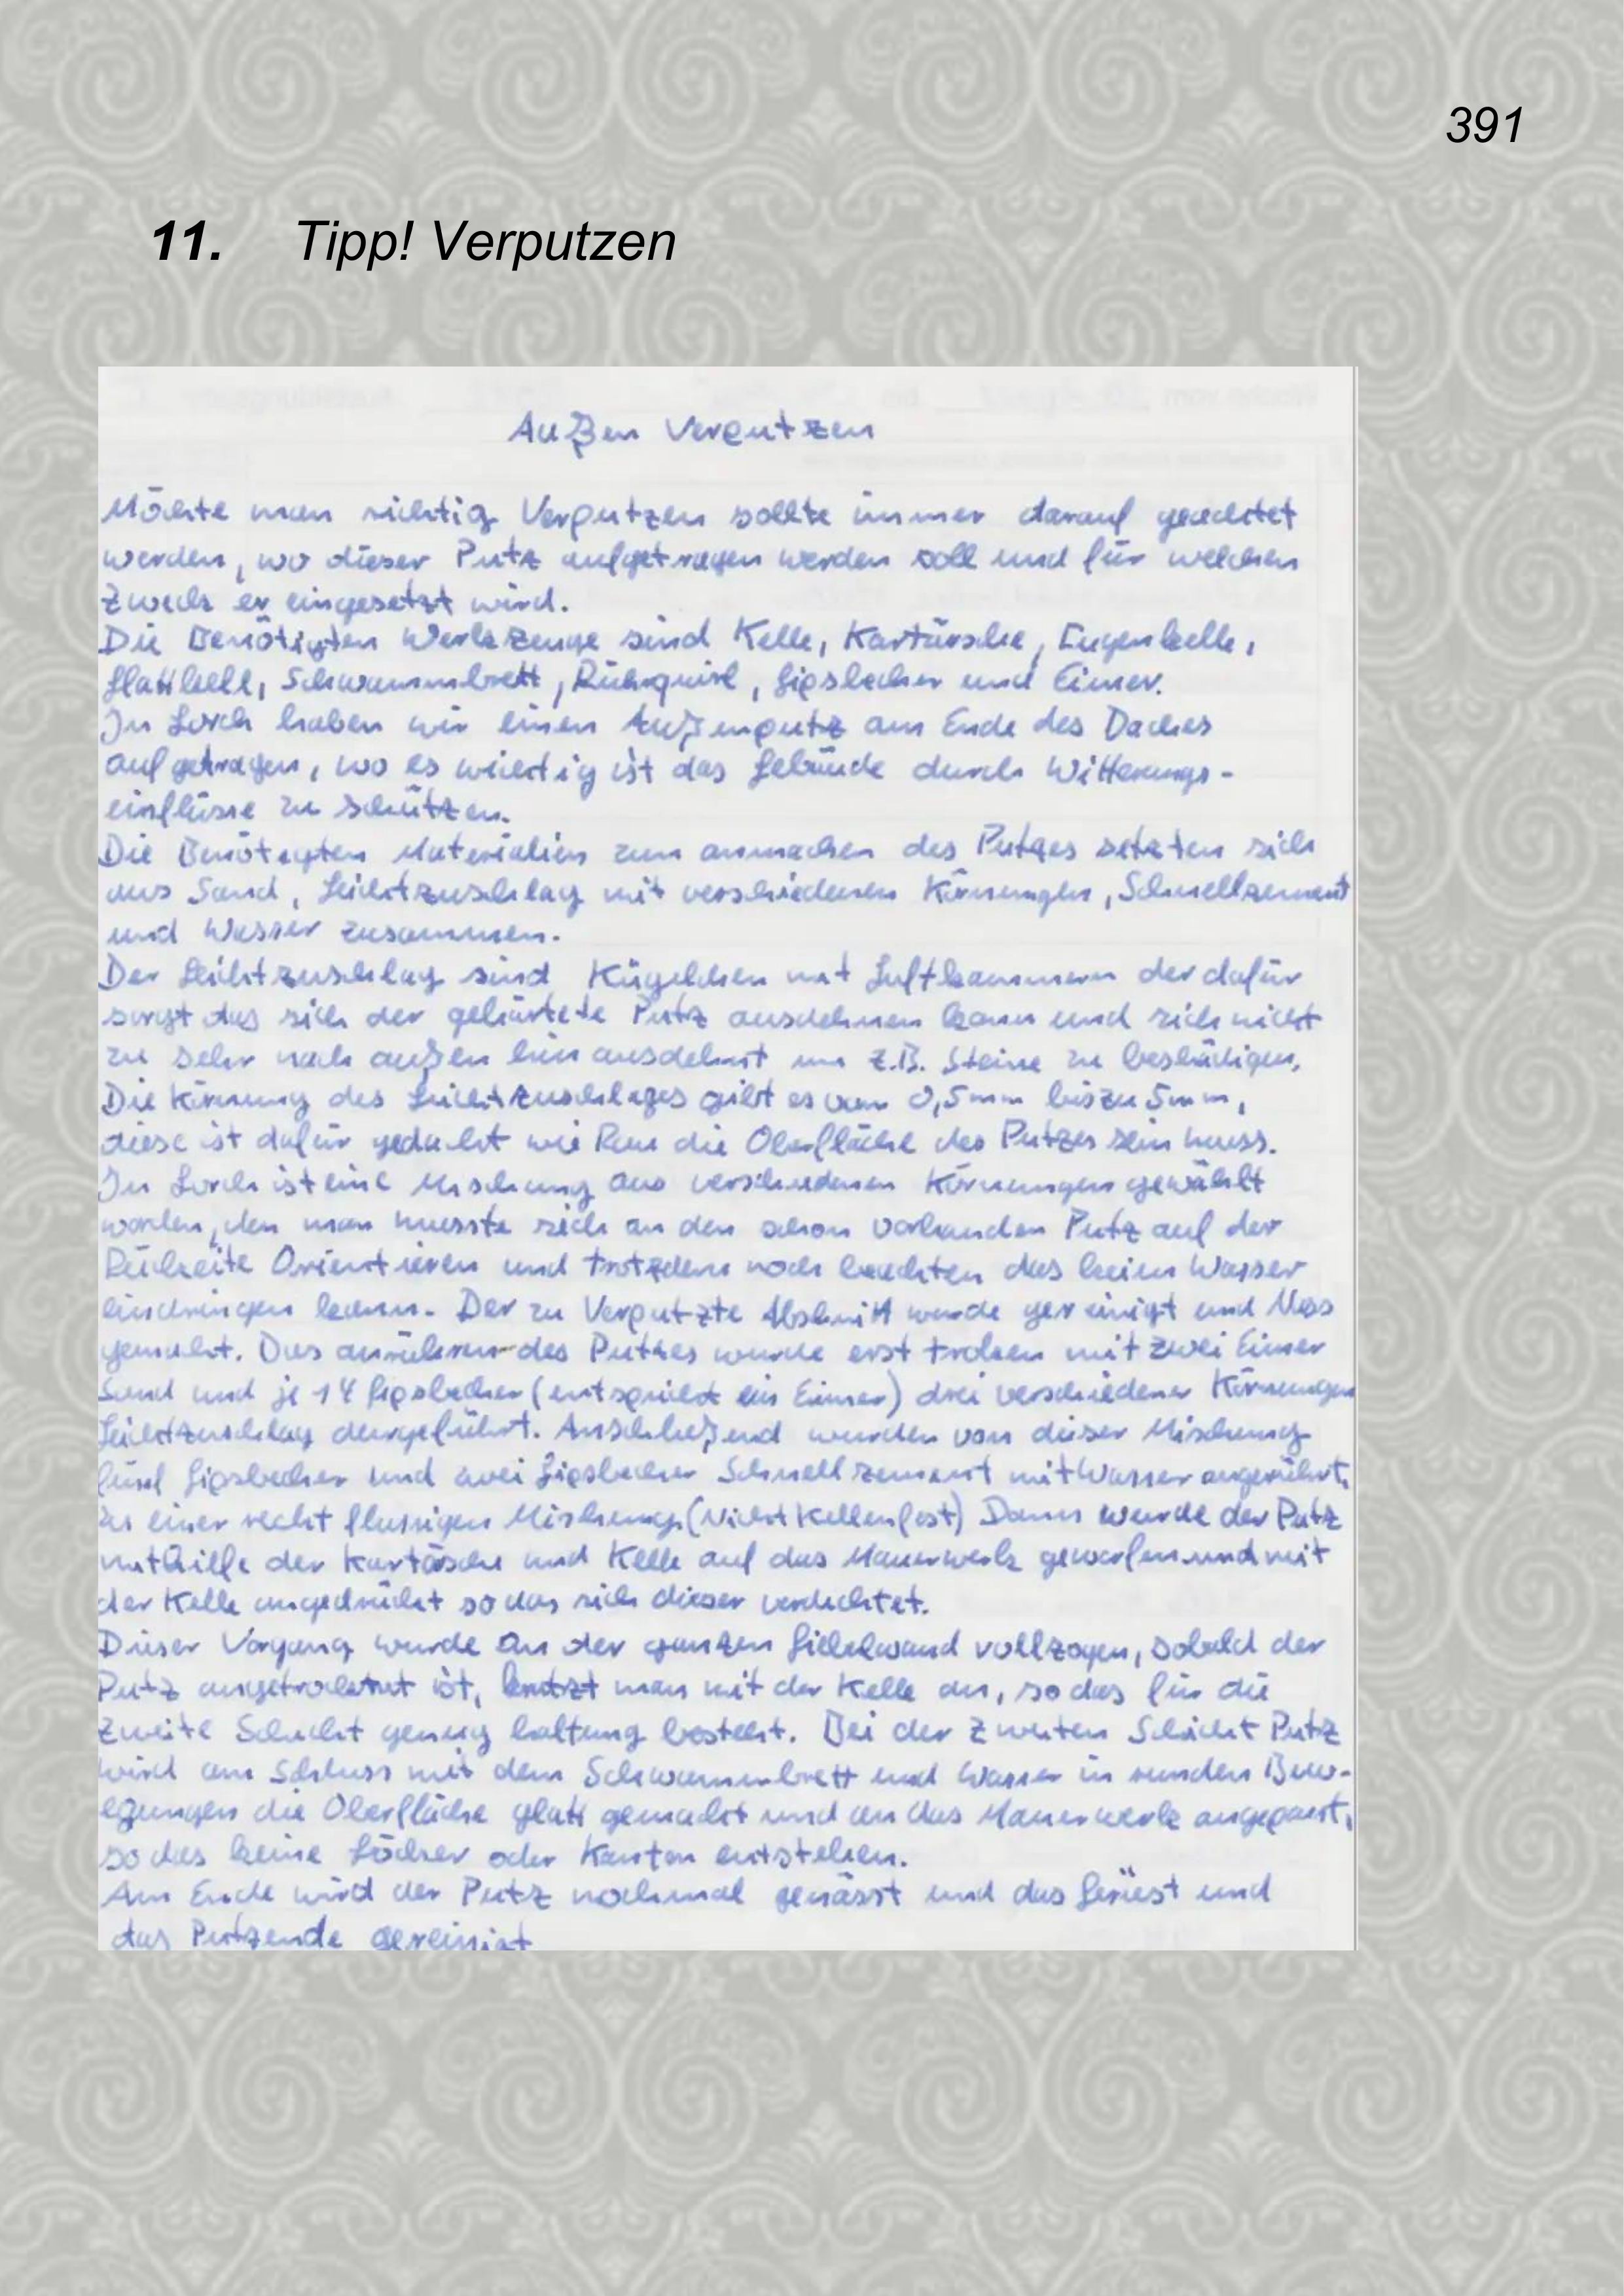 391
11. Tipp! Verputzen
Außen Verputzen
Möchte man richtig Verputzen sollte immer darauf geachtet
werden, wo dieser Putz aufgetragen werden soll und für welchen
Zweck er eingesetzt wird.
Die Benötigten Werkzeuge sind Kelle, Kartärsche, Fugenkelle,
Glattkelle, Schwammbrett, Rührquirl, Gipsbecher und Eimer.
In Lorch haben wir einen Außenputz am Ende des Daches
aufgetragen, wo es wichtig ist das Gebäude durch Witterungs-
einflüsse zu schützen.
Die Benötigten Materialien zum anmachen des Putzes setzten sich
aus Sand, Leichtzuschlag mit verschiedenen Körnungen, Schnellzement
und Wasser zusammen.
Der Leichtzuschlag sind Kügelchen mit Luftkammern der dafür
sorgt das sich der gehärtete Putz ausdehnen kann und sich nicht
zu sehr nach außen hin ausdehnt um z.B. Steine zu beschädigen.
Die Körnung des Leichtzuschlages gibt es von 0,5mm bis zu 5mm,
diese ist dafür gedacht wie Rau die Oberfläche des Putzes sein muss.
In Lorch ist eine Mischung aus verschiedenen Körnungen gewählt
worden, den man musste sich an den schon vorhanden Putz auf der
Rückseite Orientieren und trotzdem noch beachten das kein Wasser
eindringen kann. Der zu Verputzte Abschnitt wurde gereinigt und Nass
gemacht. Das anrühren des Putzes wurde erst troken mit zwei Eimer
Sand und je 14 Gipsbecher (entspricht ein Eimer) drei verschiedener Körnungen
Leichtzuschlag durgeführt. Anschließend wurden von dieser Mischung
fünf Gipsbecher und zwei Gipsbecher Schnellzement mit Wasser angerührt,
zu einer recht flussigen Mischung (Nicht Kellenfest) Dann wurde der Putz
mithilfe der Kartäsche und Kelle auf das Mauerwerk geworfen und mit
der Kelle angedrückt so das sich dieser verdichtet.
Dieser Vorgang wurde an der ganzen Giebelwand vollzogen, sobald der
Putz angetrocknet ist, kratzt man mit der Kelle an, so das für die
zweite Schicht genug haltung besteht. Bei der Zweiten Schicht Putz
wird am Schluss mit dem Schwammbrett und Wasser in runden Bew-
egungen die Oberfläche glatt gemacht und an das Mauerwerk angepasst,
so das keine Löcher oder Kanten entstehen.
Am Ende wird der Putz nochmal genässt und das Gerüest und
das Putzende gereinigt